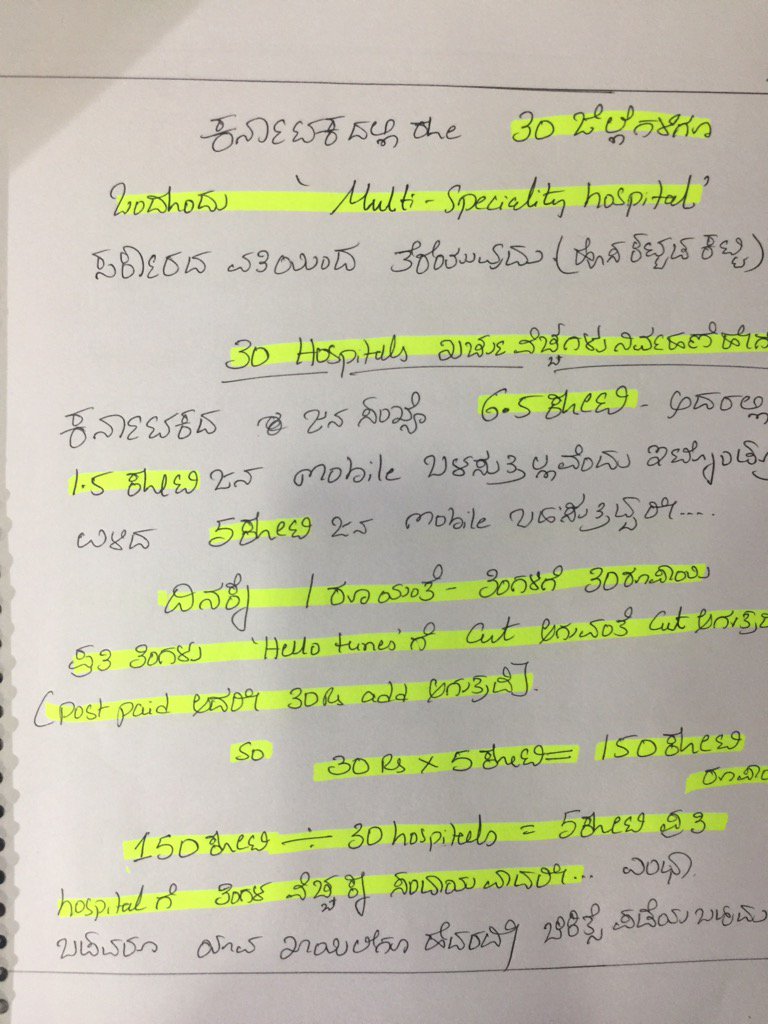 ಕರ್ನಾಟಕದಲ್ಲಿ the 30 ಜಿಲ್ಲೆಗಳಿಗೂ
ಒಂದೊಂದು ' Multi-Speciality hospital'
ಸರ್ಕಾರದ ವತಿಯಿಂದ ತೆರೆಯುವುದು ( ಕಟ್ಟಡ ಕಟ್ಟಿ)
30 Hospitals ಖರ್ಚು ವೆಚ್ಚಗಳು ನಿರ್ವಹಣೆ ಹೇಗೆ
ಕರ್ನಾಟಕದ ಜನ ಸಂಖ್ಯೆ 6.5 ಕೋಟಿ - ಅದರಲ್ಲಿ
1.5 ಕೋಟಿ ಜನ mobile ಬಳಸುತ್ತಿಲ್ಲವೆಂದು ಇಟ್ಕೊಂಡ್ರು
ಉಳಿದ 5 ಕೋಟಿ ಜನ mobile ಬಳಸುತ್ತಿದ್ದಾರೆ....
ದಿನಕ್ಕೆ 1 ರೂಯಂತೆ - ತಿಂಗಳಿಗೆ 30 ರೂಪಾಯಿ
ಪ್ರತಿ ತಿಂಗಳು 'Hello tunes' ಗೆ Cut ಆಗುವಂತೆ Cut ಆಗುತ್ತದೆ
(Post paid ಆದರೆ 30 Rs add ಆಗುತ್ತದೆ).
so 30 Rs × 5 ಕೋಟಿ = 150 ಕೋಟಿ
ರೂಪಾಯಿ
150 ಕೋಟಿ ÷ 30 hospitals = 5 ಕೋಟಿ ಪ್ರತಿ
hospital ಗೆ ತಿಂಗಳ ವೆಚ್ಚಕ್ಕೆ ಸಂದಾಯವಾದರೆ... ಎಂಥಾ
ಬಡವರೂ ಯಾವ ಖಾಯಿಲೆಗೂ ಹೆದರದೆ ಚಿಕಿತ್ಸೆ ಪಡೆಯಬಹುದು